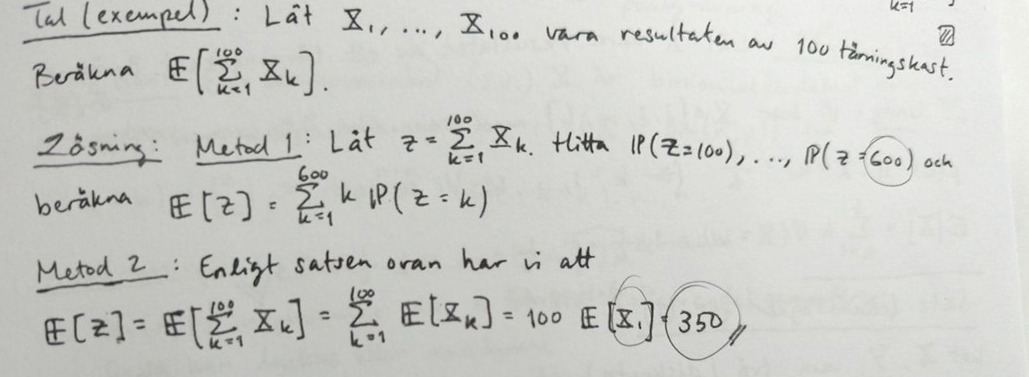 k=1
Tal (exempel): Låt X₁, ..., X₁₀₀ vara resultaten av 100 tärningskast.
Beräkna E[∑_{k=1}^{100} X_k].
Lösning: Metod 1: Låt z = ∑_{k=1}^{100} X_k. Hitta P(z=100), ..., P(z=600) och
beräkna E[z] = ∑_{k=1}^{600} k P(z=k)
Metod 2: Enligt satsen ovan har vi att
E[z] = E[∑_{k=1}^{100} X_k] = ∑_{k=1}^{100} E[X_k] = 100 E[X₁] = 350